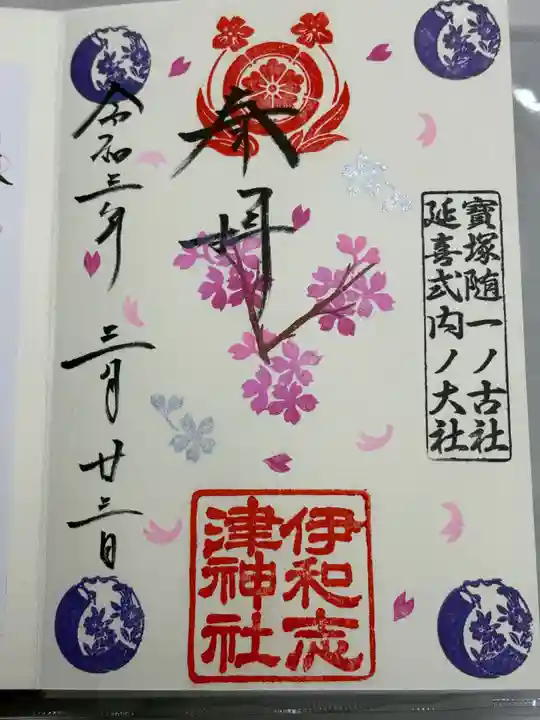 寶塚随一ノ古社
延喜式内ノ大社
奉拝
伊和志
津神社
令和三年 三月廿三日